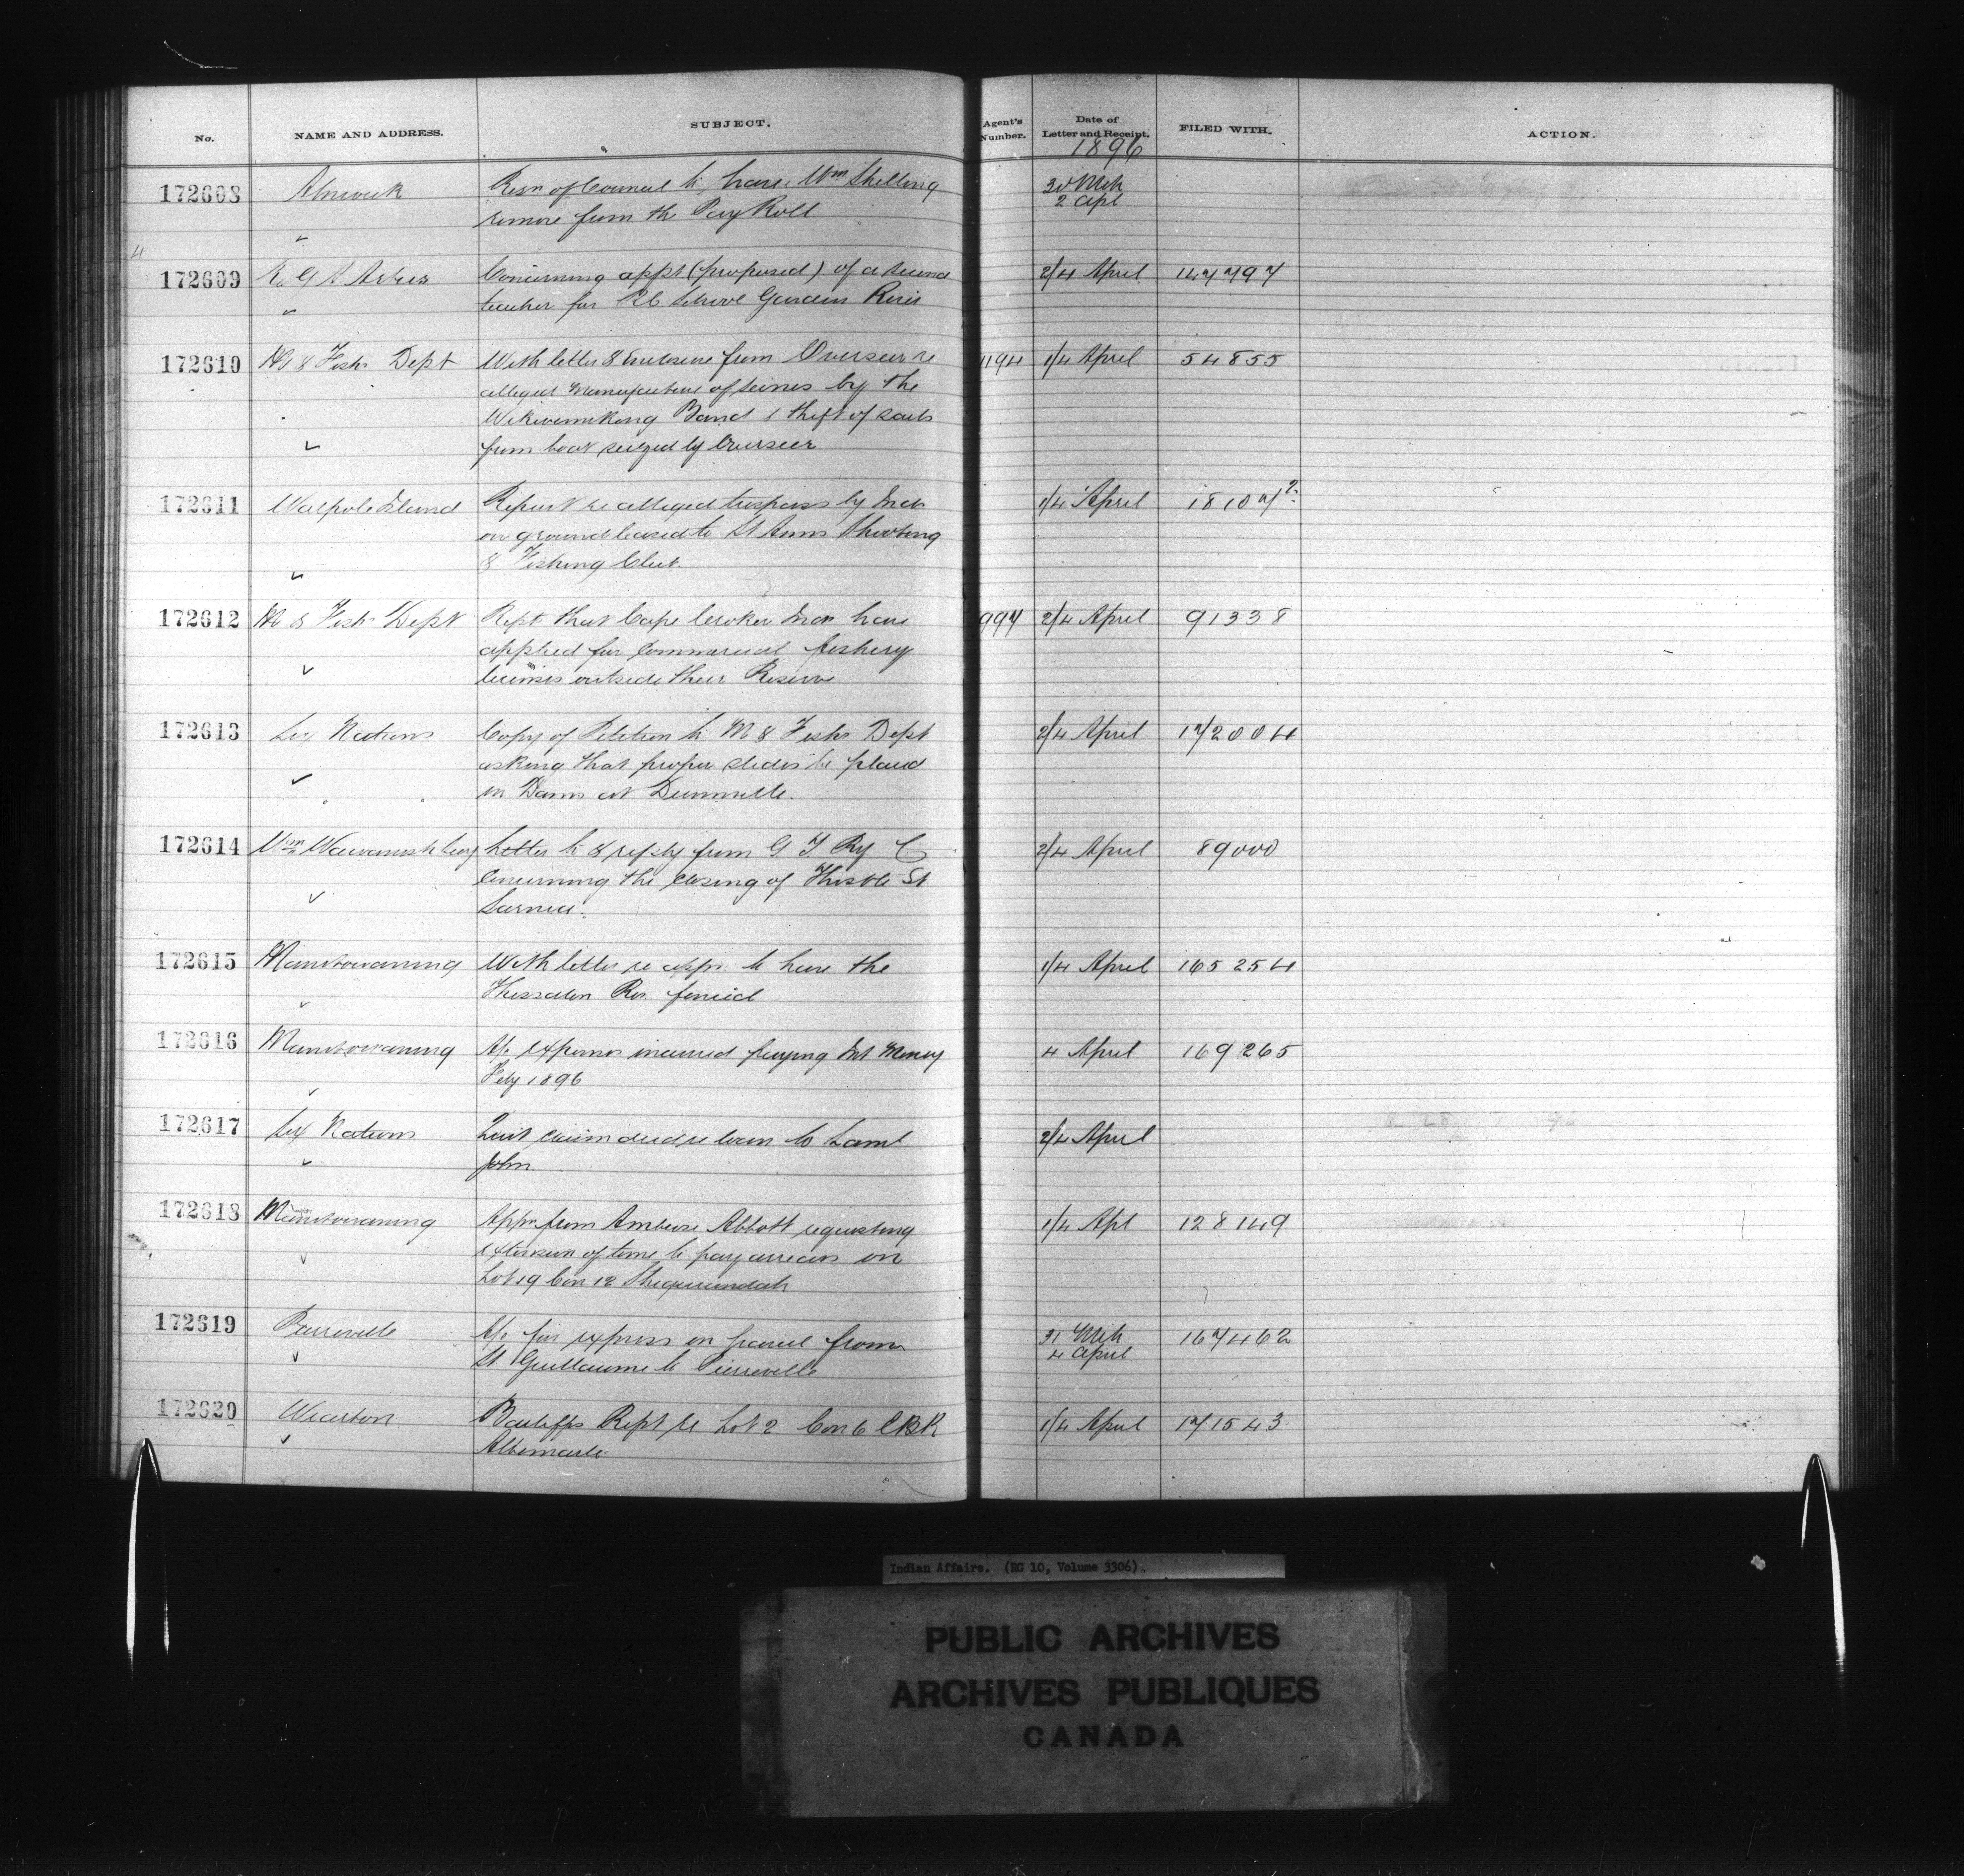 No. NAME AND ADDRESS. SUBJECT. Agent's Number. Date of Letter and Receipt. FILED WITH. ACTION.
1896
172608 Alnwick Resn of Council to have Wm Shilling 30 Mch
remove from the Pay Roll 2 Apl
172609 Concerning appt (proposed) of a second 2/4 April 147797
teacher for RC School Garden River
172610 M & Fish Dept With letter & enclosure from Overseer re 1194 1/4 April 54855
alleged manufacture of seines by the
Wikwemikong Band & theft of sails
from boat seized by Overseer
172611 Walpole Island Report re alleged trespass by Inds 1/4 April 18107 2
on ground leased to St Anns Shooting
& Fishing Club.
172612 M & Fish Dept Rept that Cape Croker Inds have 997 2/4 April 91338
applied for commercial fishery
licenses outside their Reserve
172613 Six Nations Copy of Petition to M & Fish Dept 2/4 April 172004
asking that proper slides be placed
in Dams at Dunnville.
172614 Wm Wawanosh Letter to & reply from G T Ry Co 2/4 April 89000
concerning the closing of Thistle St
Sarnia.
172615 Manitowaning With letter re appn to have the 1/4 April 165254
Thessalon Res. fenced
172616 Manitowaning A/c expenses incurred paying Int Money 4 April 169265
Feby 1896
172617 Six Nations Quit claim deed re loan to Saml 2/4 April
John
172618 Manitowaning Appn from Ambrose Abbott requesting 1/4 Apl 128149
extension of time to pay arrears on
Lot 19 Con 12 Sheguiandah
172619 Pierreville A/c for express on parcel from 31 Mch 167462
St Guillaume to Pierreville 4 April
172620 Wiarton Bailiffs Rept re Lot 2 Con 6 EBR 1/4 April 171543
Albemarle
Indian Affairs. (RG 10, Volume 3306).
PUBLIC ARCHIVES
ARCHIVES PUBLIQUES
CANADA